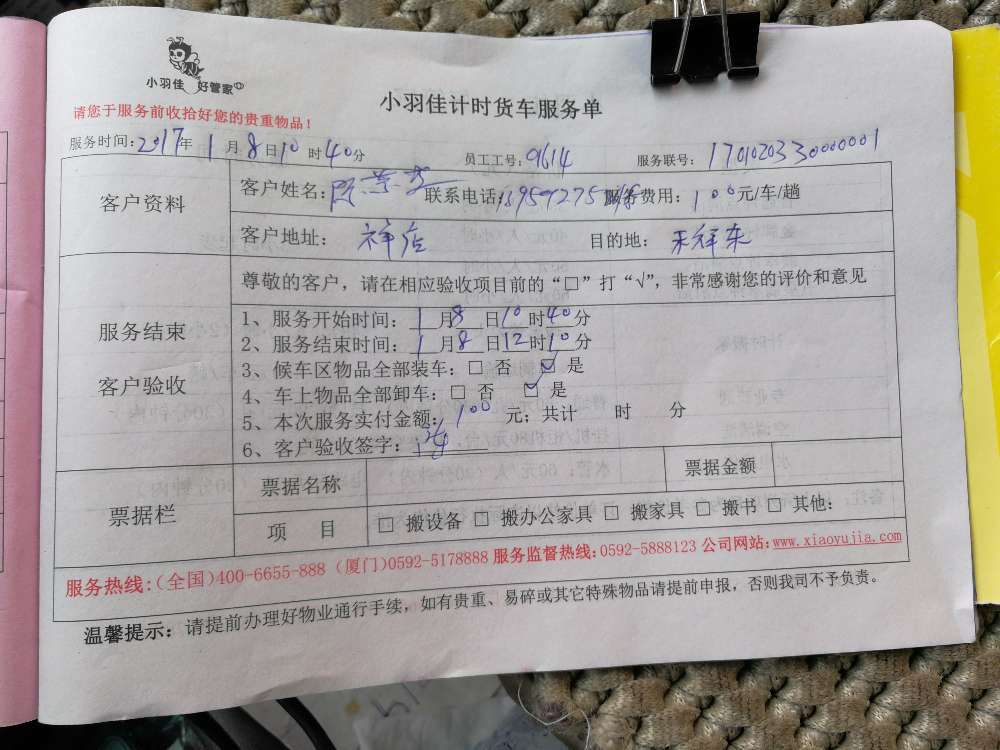 小羽佳 好管家
小羽佳计时货车服务单
请您于服务前收拾好您的贵重物品！
服务时间：2017年 1 月 8 日 10 时 40 分 员工工号：9614 服务联号：1701020330000001
客户资料
客户姓名： 联系电话： 服务费用：100元/车/趟
客户地址： 祥店 目的地： 祥东
服务结束
客户验收
尊敬的客户，请在相应验收项目前的“□”打“√”，非常感谢您的评价和意见
1、服务开始时间： 1 月 8 日 10 时 40 分
2、服务结束时间： 1 月 8 日 12 时 10 分
3、候车区物品全部装车：□ 否 ☑ 是
4、车上物品全部卸车：□ 否 ☑ 是
5、本次服务实付金额：100 元；共计 时 分
6、客户验收签字：
票据栏
票据名称 票据金额
项 目 □ 搬设备 □ 搬办公家具 □ 搬家具 □ 搬书 □ 其他：
服务热线：(全国)400-6655-888 (厦门)0592-5178888 服务监督热线：0592-5888123 公司网站：www.xiaoyujia.com
温馨提示：请提前办理好物业通行手续，如有贵重、易碎或其它特殊物品请提前申报，否则我司不予负责。